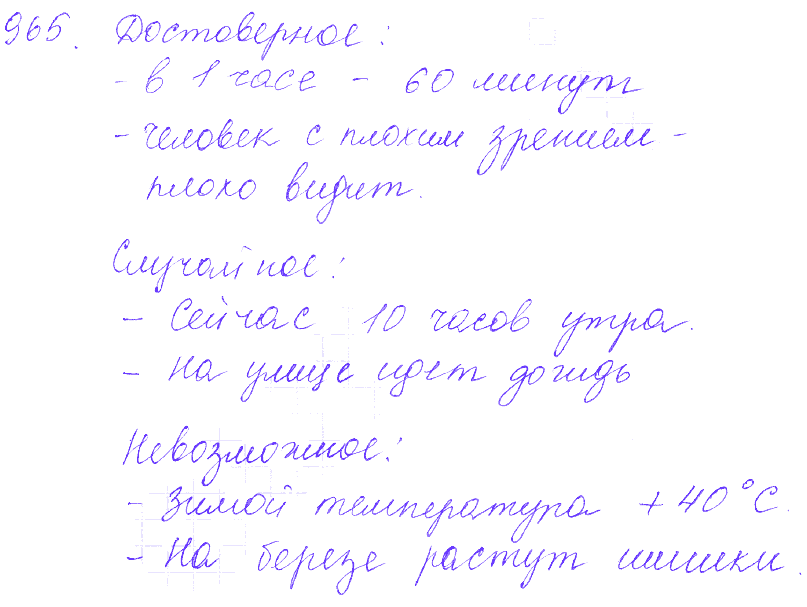 965. Достоверное:
- в 1 часе - 60 минут
- человек с плохим зрением -
плохо видит.
Случайное:
- Сейчас 10 часов утра.
- На улице идет дождь
Невозможное:
- Зимой температура +40°С.
- На березе растут шишки.